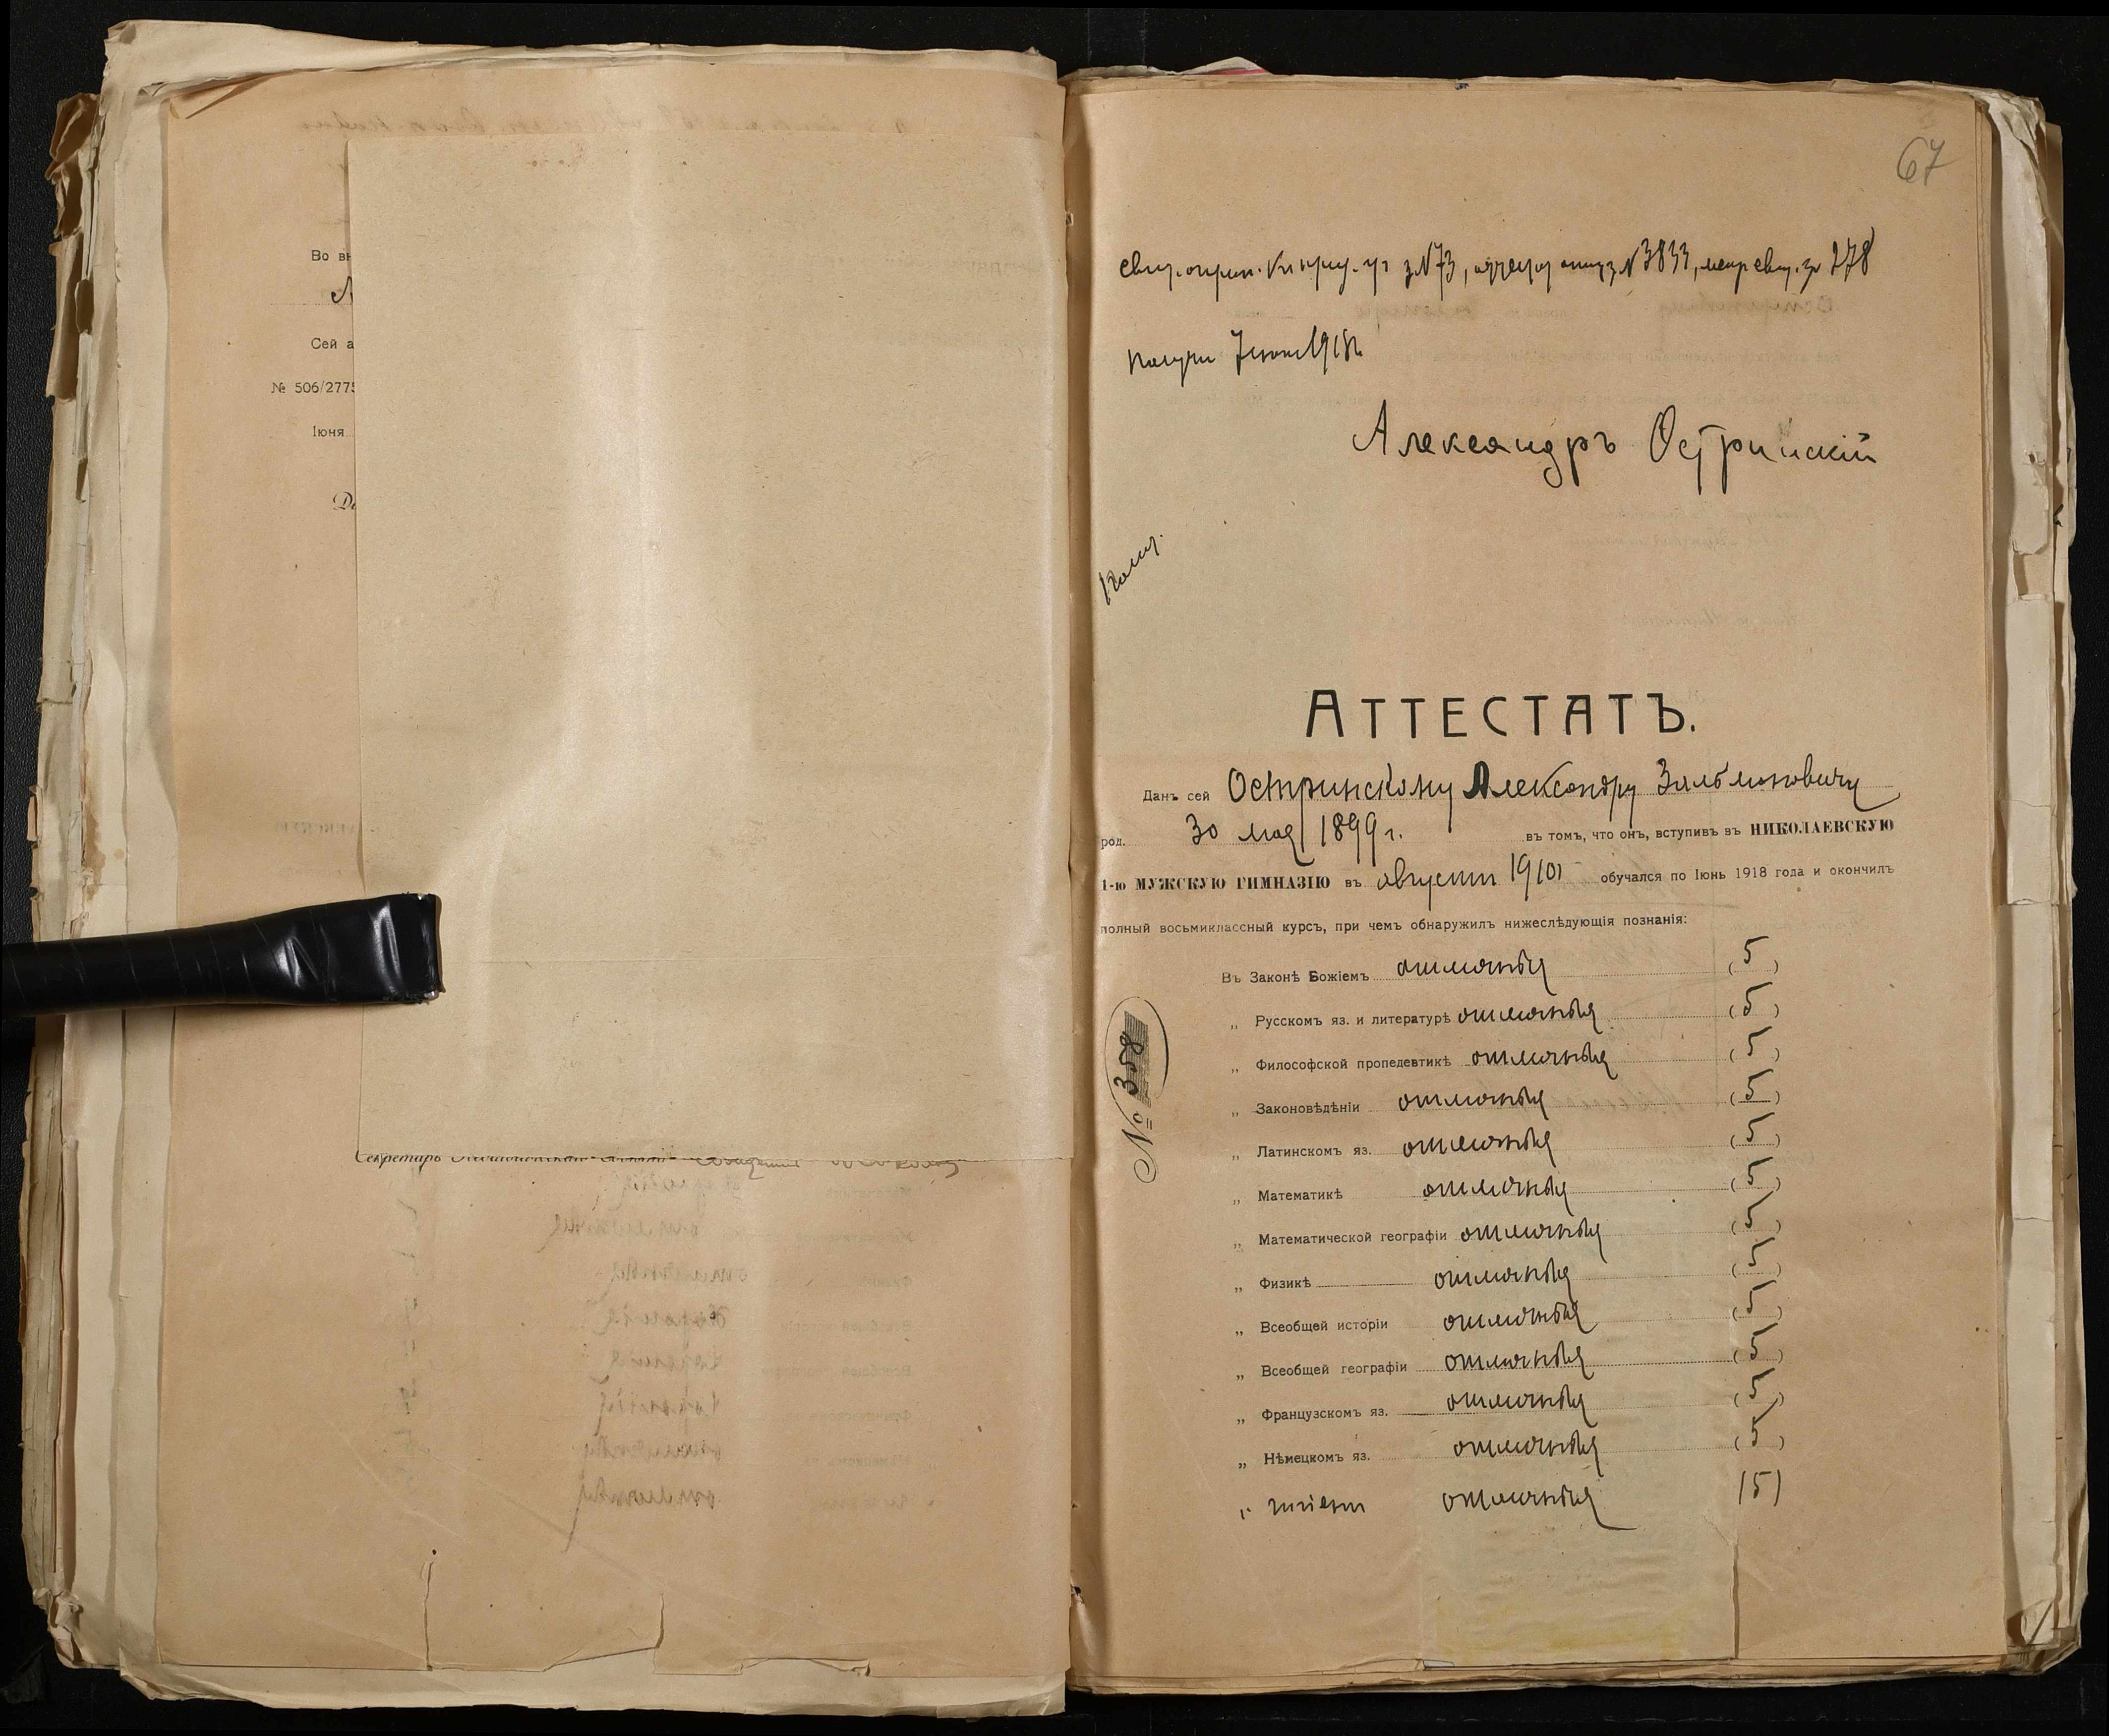 Во вн
Сей а
№ 506/2775
Іюня
Секретарь
67
№ 73, № 3833, 278
1918 г.
Александръ Остринскій
Копія
АТТЕСТАТЪ.
Данъ сей Остринскому Александру Зальмановичу
род. 30 мая 1899 г. въ томъ, что онъ, вступивъ въ НИКОЛАЕВСКУЮ
1-ю МУЖСКУЮ ГИМНАЗІЮ въ августѣ 1910 г. обучался по Іюнь 1918 года и окончилъ
полный восьмиклассный курсъ, при чемъ обнаружилъ нижеслѣдующія познанія:
Въ Законѣ Божіемъ отличныя (5)
„ Русскомъ яз. и литературѣ отличныя (5)
„ Философской пропедевтикѣ отличныя (5)
„ Законовѣдѣніи отличныя (5)
„ Латинскомъ яз. отличныя (5)
„ Математикѣ отличныя (5)
„ Математической географіи отличныя (5)
„ Физикѣ отличныя (5)
„ Всеобщей исторіи отличныя (5)
„ Всеобщей географіи отличныя (5)
„ Французскомъ яз. отличныя (5)
„ Нѣмецкомъ яз. отличныя (5)
„ гигіенѣ отличныя (5)
№ 358